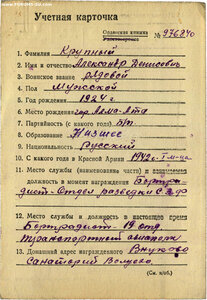 Учетная карточка
Орденская книжка
№ 976240
1. Фамилия Крупный
2. Имя и отчество Александр Денисович
3. Воинское звание рядовой
4. Пол Мужской
5. Год рождения 1924 г.
6. Место рождения гор. Алма-Ата
7. Партийность (с какого года) б/п
8. Образование Низшее
9. Национальность Русский
10. С какого года в Красной Армии 1942 г.
11. Место службы (наименование части) и занимаемая
должность в момент награждения Бортра-
дист-Отдел разведки
12. Место службы и должность в настоящее время
Бортрадист-19 отд.
транспортный авиаполк
13. Домашний адрес награжденного Внуково
Санаторий
(См. н/об.)